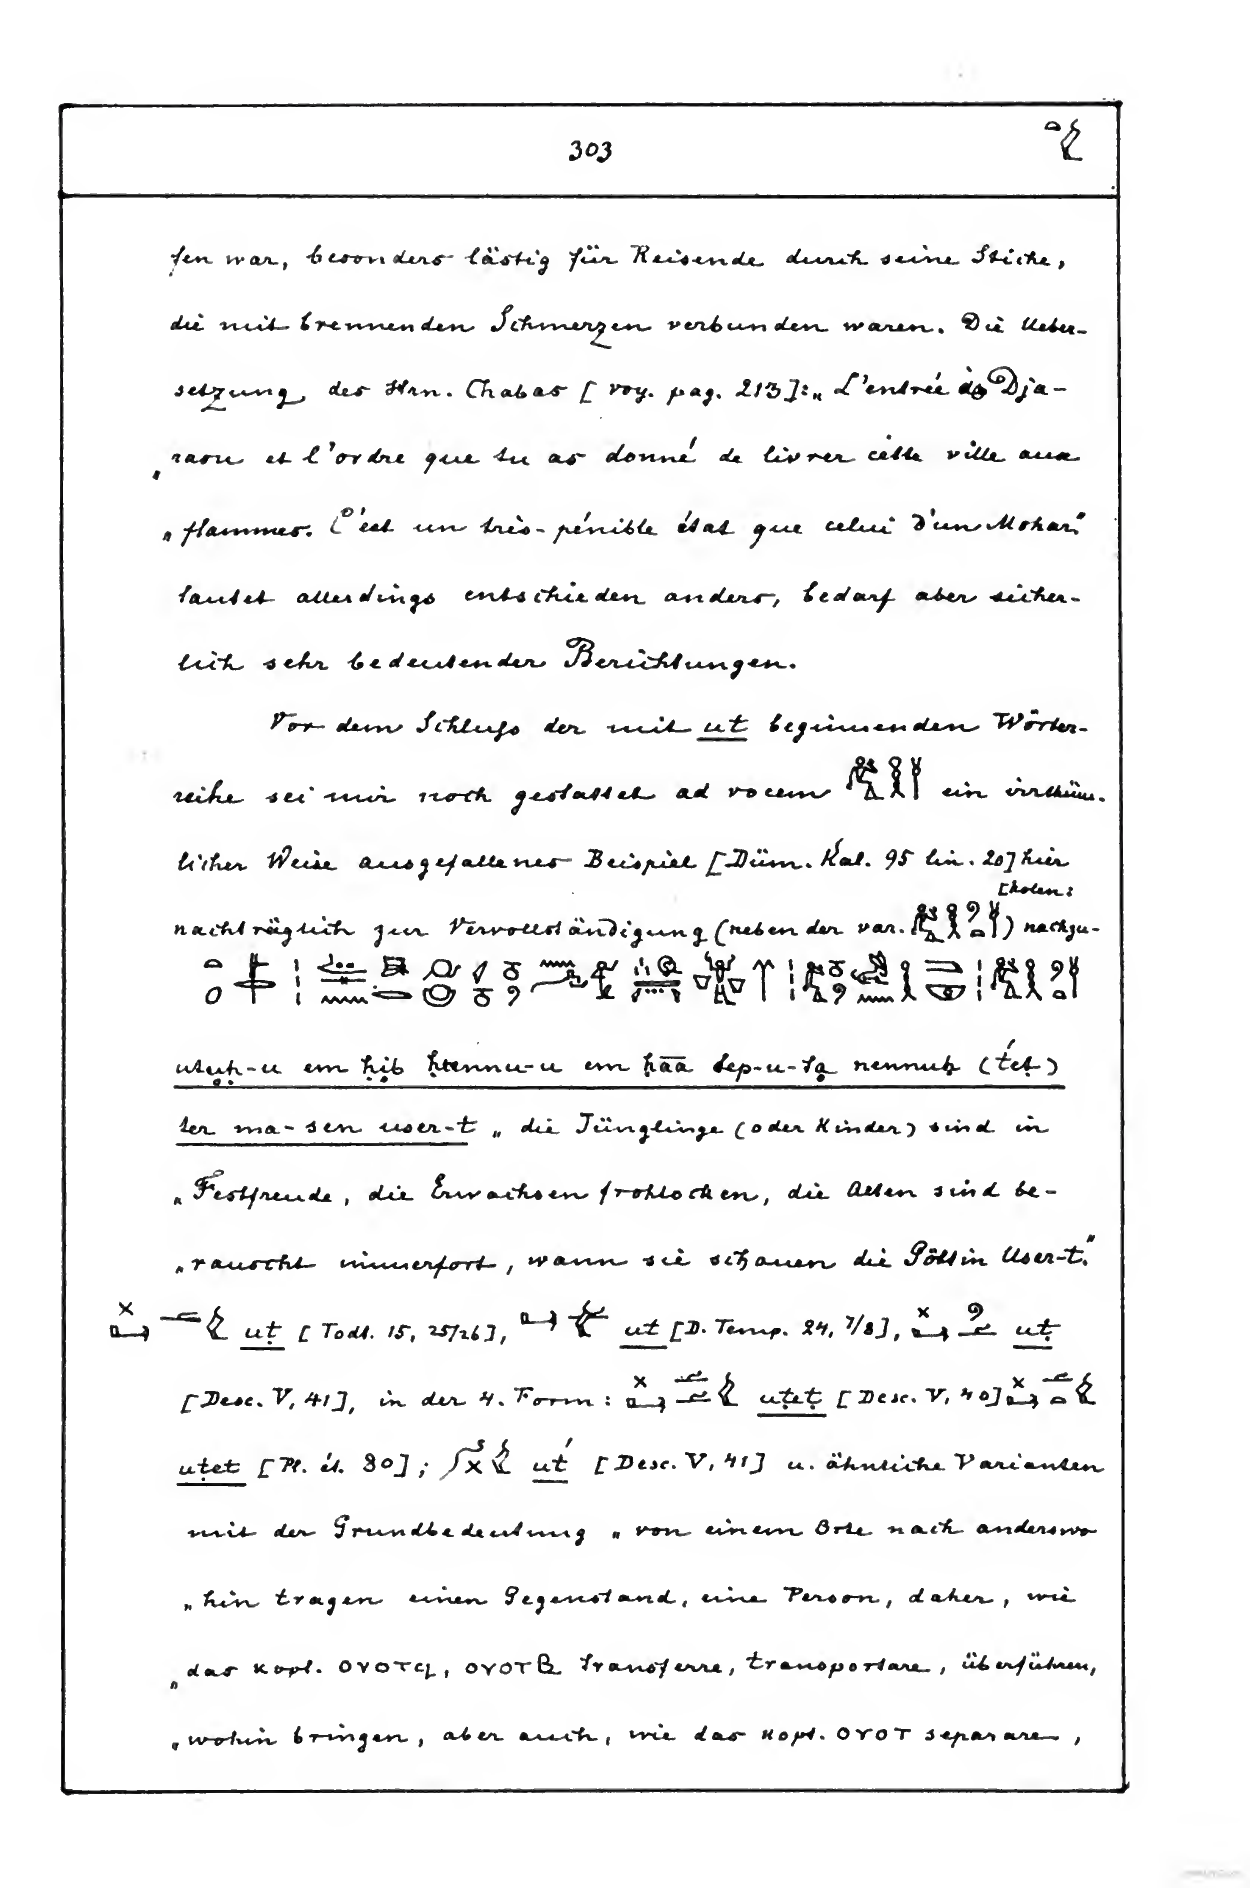 303
fen war, besonders lästig für Reisende durch seine Stiche,
die mit brennenden Schmerzen verbunden waren. Die Ueber-
setzung des Hrn. Chabas [voy. pag. 213]: „L'entrée de Dja-
„raou et l'ordre que tu as donné de livrer cette ville aux
„flammes. C'est un très-pénible état que celui d'un Mohar."
lautet allerdings entschieden anders, bedarf aber sicher-
lich sehr bedeutender Berichtungen.
Vor dem Schluſs der mit ut beginnenden Wörter-
reihe sei mir noch gestattet ad vocem ein irrthüm-
licher Weise ausgefallenes Beispiel [Düm. Kal. 95 lin. 20] hier
[holen:
nachträglich zur Vervollständigung (neben der var. ) nachzu-
-u em ḥib -u em ḥāā tep-u- (t́eṭ)
ter ma-sen user-t „die Jünglinge (oder Kinder) sind in
„Festfreude, die Erwachsen frohlocken, die Alten sind be-
„rauscht immerfort, wann sie schauen die Göttin User-t."
uṭ [Todt. 15, 25/26], ut [D. Temp. 24, 7/8], uṭ
[Desc. V, 41], in der 4. Form: uṭeṭ [Desc. V, 40]
uṭet [Pl. ét. 80]; ut́ [Desc. V, 41] u. ähnliche Varianten
mit der Grundbedeutung „von einem Orte nach anderswo
„hin tragen einen Gegenstand, eine Person, daher, wie
„das kopt. ⲟⲩⲟⲧϥ, ⲟⲩⲟⲧⲃ transferre, transportare, überführen,
„wohin bringen, aber auch, wie das kopt. ⲟⲩⲟⲧ separare,